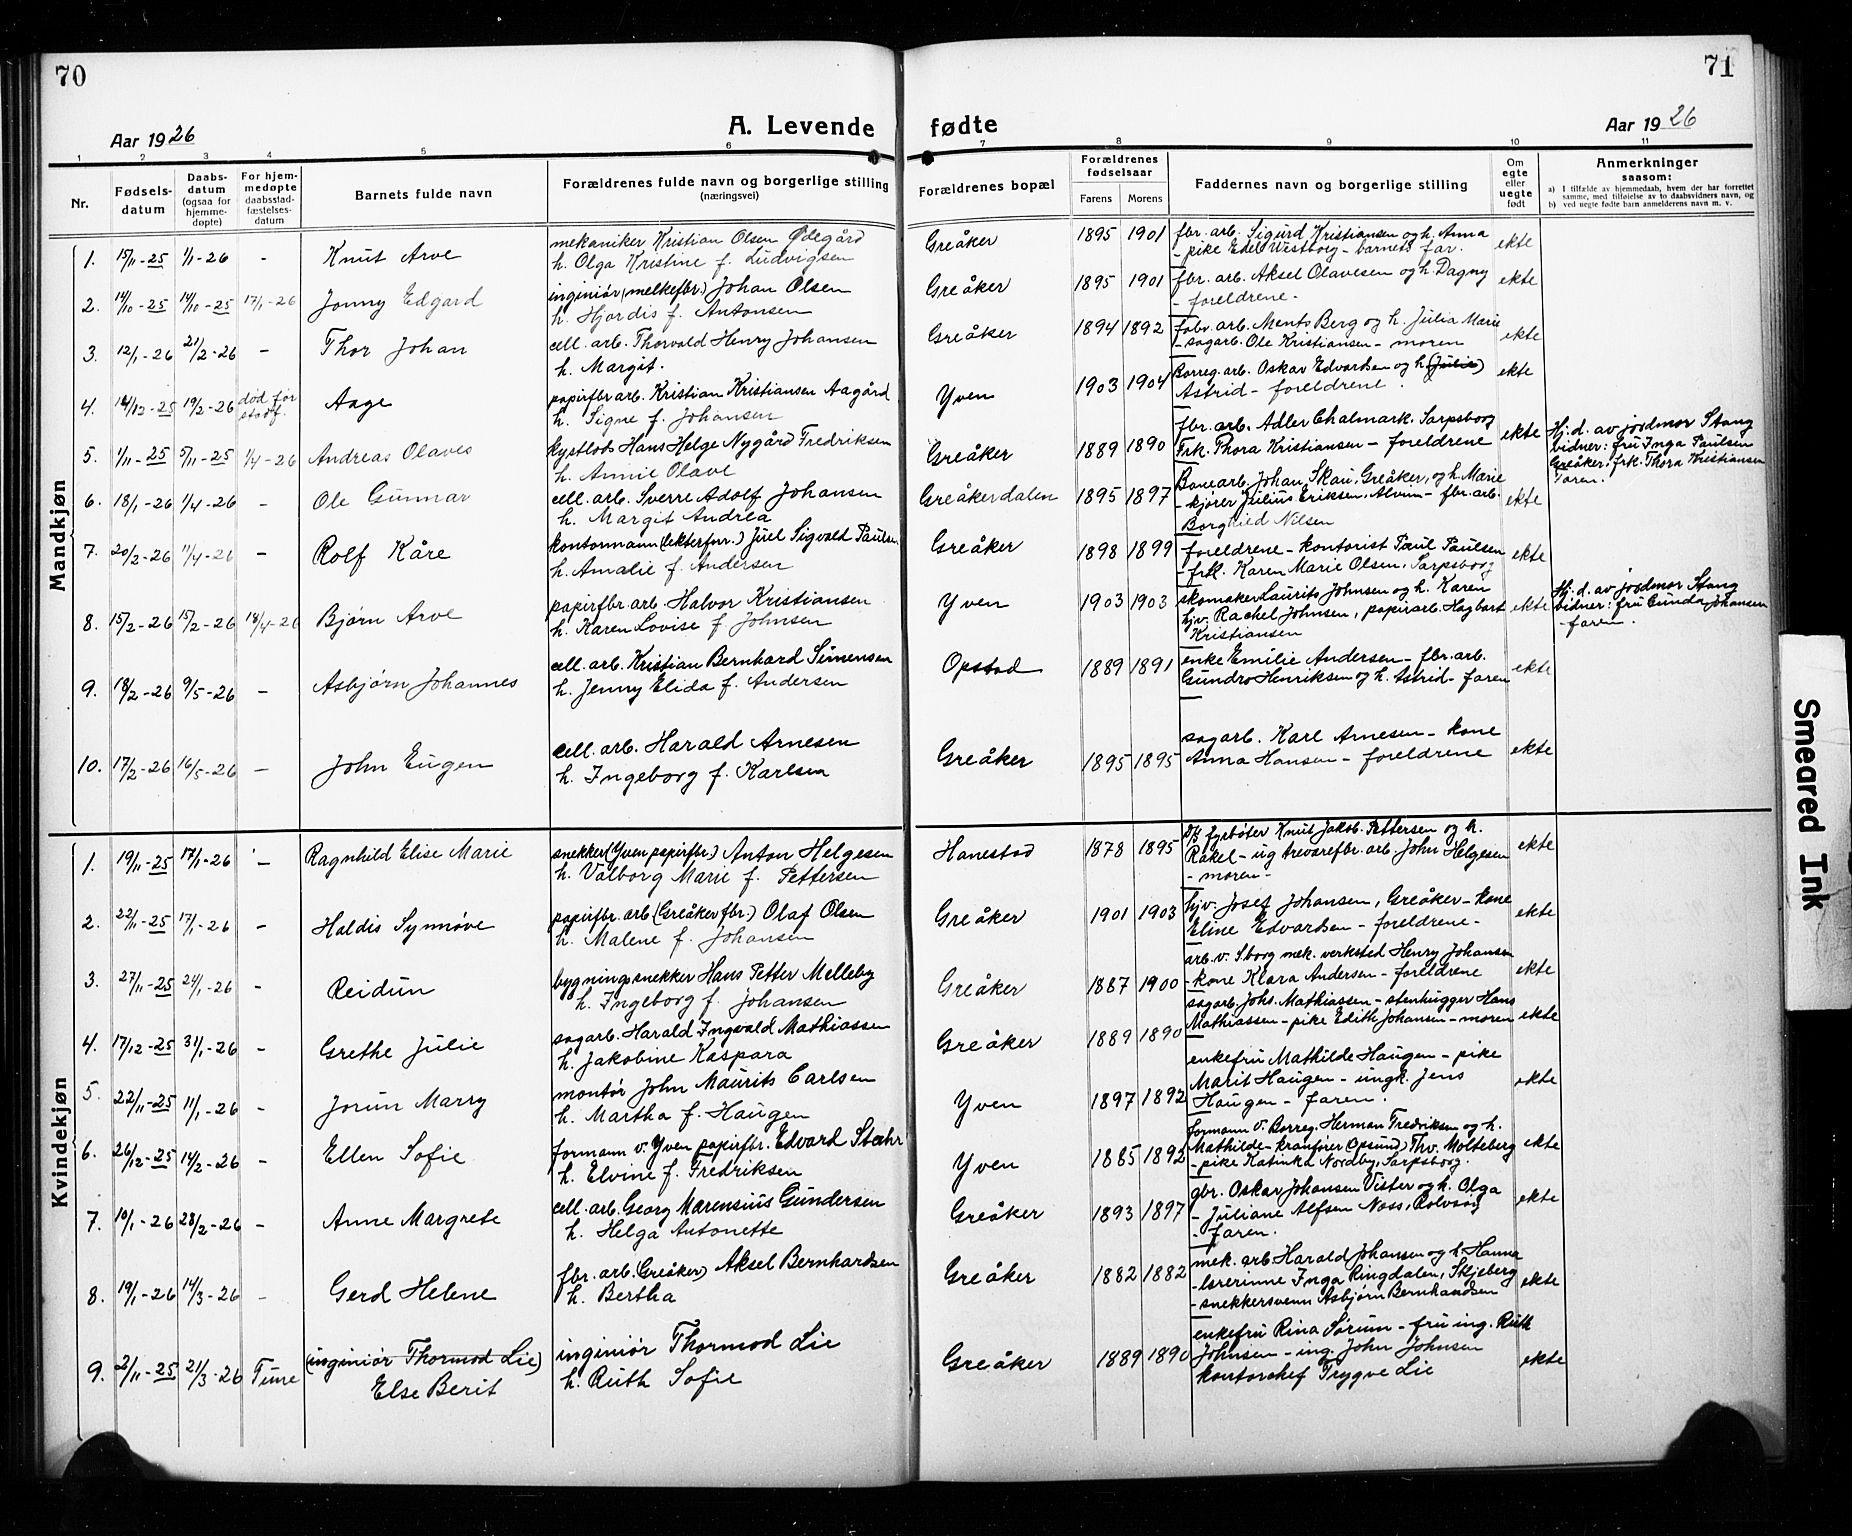 70
71
Aar 1926
A. Levende fødte
Aar 1926
1 2 3 4 5 6 7 8 9 10 11
Nr.
Fødsels-
datum
Daabs-
datum
(ogsaa for
hjemme-
døpte)
For hjem-
medøpte
daabsstad-
fæstelses-
datum
Barnets fulde navn
Forældrenes fulde navn og borgerlige stilling
(næringsvei)
Forældrenes bopæl
Forældrenes
fødselsaar
Farens Morens
Faddernes navn og borgerlige stilling
Om
egte
eller
uegte
født
Anmerkninger
saasom:
a) I tilfælde av hjemmedaab, hvem der har forrettet
samme, med tilføielse av to daabsvidners navn, og
b) ved uegte fødte barn anmelderens navn m. v.
Mandkjøn
1. 15/11-25 1/1-26 - Knut Arve
mekaniker Kristian Olsen Ødegård
h. Olga Kristine f. Ludvigsen
Greåker 1895 1901
fbr. arb. Sigurd Kristiansen og h. Anna
- pike Edel Westborg - barnets far.
ekte
2. 14/10-25 14/10-25 17/1-26 Jonny Edgard
inginiør (melkefbr.) Johan Olsen
h. Hjørdis f. Antonsen
Greåker 1895 1901
fbr. arb. Aksel Olavesen og h. Dagny
- foreldrene -
ekte
3. 12/1-26 21/2-26 - Thor Johan
cell. arb. Thorvald Henry Johansen
h. Margit.
Greåker 1894 1892
fabr. arb. Ments Berg og h. Julia Marie
- sagarb. Ole Kristiansen - moren
ekte
4. 14/12-25 19/2-26 død før stadf. Aage
papirfbr arb. Kristian Kristiansen Aagård
h. Signe f. Johansen
Yven 1903 1904
Borreg. arb. Oskar Edvardsen og h. (Julie)
Astrid - foreldrene.
ekte
5. 1/11-25 5/11-25 1/4-26 Andreas Olaves
kystlods Hans Helge Nygård Fredriksen
h. Annie Olave
Greåker 1889 1890
fbr. arb. Adler Chalmark. Sarpsborg
Frk. Thora Kristiansen - foreldrene
ekte
Hj. d. av jordmor Stang
vidner: fru Inga Paulsen
Greåker, frk. Thora Kristiansen
6. 18/1-26 1/4-26 - Ole Gunnar
cell. arb. Sverre Adolf Johansen
h. Margit Andrea
Greåkerdalen 1895 1897
Banearb. Johan Skau, Greåker, og h. Marie
- kjører Julius Eriksen, Alvim - fbr. arb.
Borghild Nilsen
ekte
7. 20/2-26 11/4-26 - Rolf Kåre
kontormann (lekterfnr.) Juel Sigvald Paulsen
h. Amalie f. Andersen
Greåker 1898 1899
foreldrene - kontorist Paul Paulsen
- frk. Karen Marie Olsen, Sarpsborg
ekte
8. 15/2-26 15/2-26 18/4-26 Bjørn Arve
papirfbr. arb. Halvor Kristiansen
h. Karen Lovise f. Johnsen
Yven 1903 1903
skomaker Laurits Johnsen og h. Karen
hjv. Rachel Johnsen, papirarb. Hagbart
Kristiansen
ekte
Hj. d. av jordmor Stang
vidner: fru Gunda Johansen
- faren.
9. 18/2-26 9/5-26 - Asbjørn Johannes
cell. arb. Kristian Bernhard Simensen
h. Jenny Elida f. Andersen
Opstad 1889 1891
enke Emilie Andersen - fbr. arb.
Gundro Henriksen og h. Astrid - faren
ekte
10. 17/2-26 16/5-26 - John Eugen
cell. arb. Harald Arnesen
h. Ingeborg f. Karlsen
Greåker 1895 1895
sagarb. Karl Arnesen - kone
Anna Hansen - foreldrene
ekte
Kvindekjøn
1. 19/11-25 17/1-26 - Ragnhild Elise Marie
snekker (Yven papirfbr.) Anton Helgesen
h. Valborg Marie f. Pettersen
Hanestad 1878 1895
D/S fyrbøter Knut Jakob. Pettersen og h.
Rakel - ug trevarefbr. arb. John Helgesen
- moren -
ekte
2. 22/11-25 17/1-26 - Haldis Synnøve
papirfbr. arb (Greåker fbr.) Olaf Olsen
h. Malene f. Johansen
Greåker 1901 1903
hjv. Josef Johansen, Greåker - kone
Eline Edvardsen - foreldrene -
ekte
3. 27/11-25 24/1-26 - Reidun
bygningssnekker Hans Petter Melleby
h. Ingeborg f. Johansen
Greåker 1887 1900
arb. v. S.borg mek. verksted Henry Johansen
- kone Klara Andersen - foreldrene
ekte
4. 17/12-25 31/1-26 - Grethe Julie
sagarb. Harald Ingvald Mathiassen
h. Jakobine Kaspara
Greåker 1889 1890
sagarb. Johs. Mathiassen - stenhugger Hans
Mathiassen - pike Edith Johansen - moren
ekte
5. 22/11-25 11/1-26 - Jorun Marry
montør John Maurits Carlsen
h. Martha f. Haugen
Yven 1897 1892
enkefru Mathilde Haugen - pike
Marit Haugen - ungk. Jens
Haugen - faren.
ekte
6. 26/12-25 14/2-26 - Ellen Sofie
formann v. Yven papirfbr. Edvard Stæhr
h. Elvine f. Fredriksen
Yven 1885 1892
formann v. Borreg. Herman Fredriksen og h.
Mathilde - kranfører (Opsund) Thv. Molteberg
- pike Katinka Nordby, Sarpsborg.
ekte
7. 10/1-26 28/2-26 - Anne Margrete
cell. arb. Georg Marensius Gundersen
h. Helga Antonette
Greåker 1893 1897
gbr. Oskar Johansen Vister og h. Olga
- Juliane Alfsen Næss, Rolvsøy
- faren.
ekte
8. 19/1-26 14/3-26 - Gerd Helene
fbr. arb. (Greåker) Aksel Bernhardsen
h. Bertha
Greåker 1882 1882
mek. arb Harald Johansen og h. Hanna
- lærerinne Inga Ringdalen, Skjeberg
- snekkersvenn Asbjørn Bernhardsen
ekte
9. 2/11-25 21/3-26 Tune (inginiør Thormod Lie)
Else Berit
inginiør Thormod Lie
h. Ruth Sofie
Greåker 1889 1890
enkefru Rina Sørum - fru ing. Ruth
Johnsen - ing. John Johnsen
kontorchef Trygve Lie
ekte
Smeared Ink